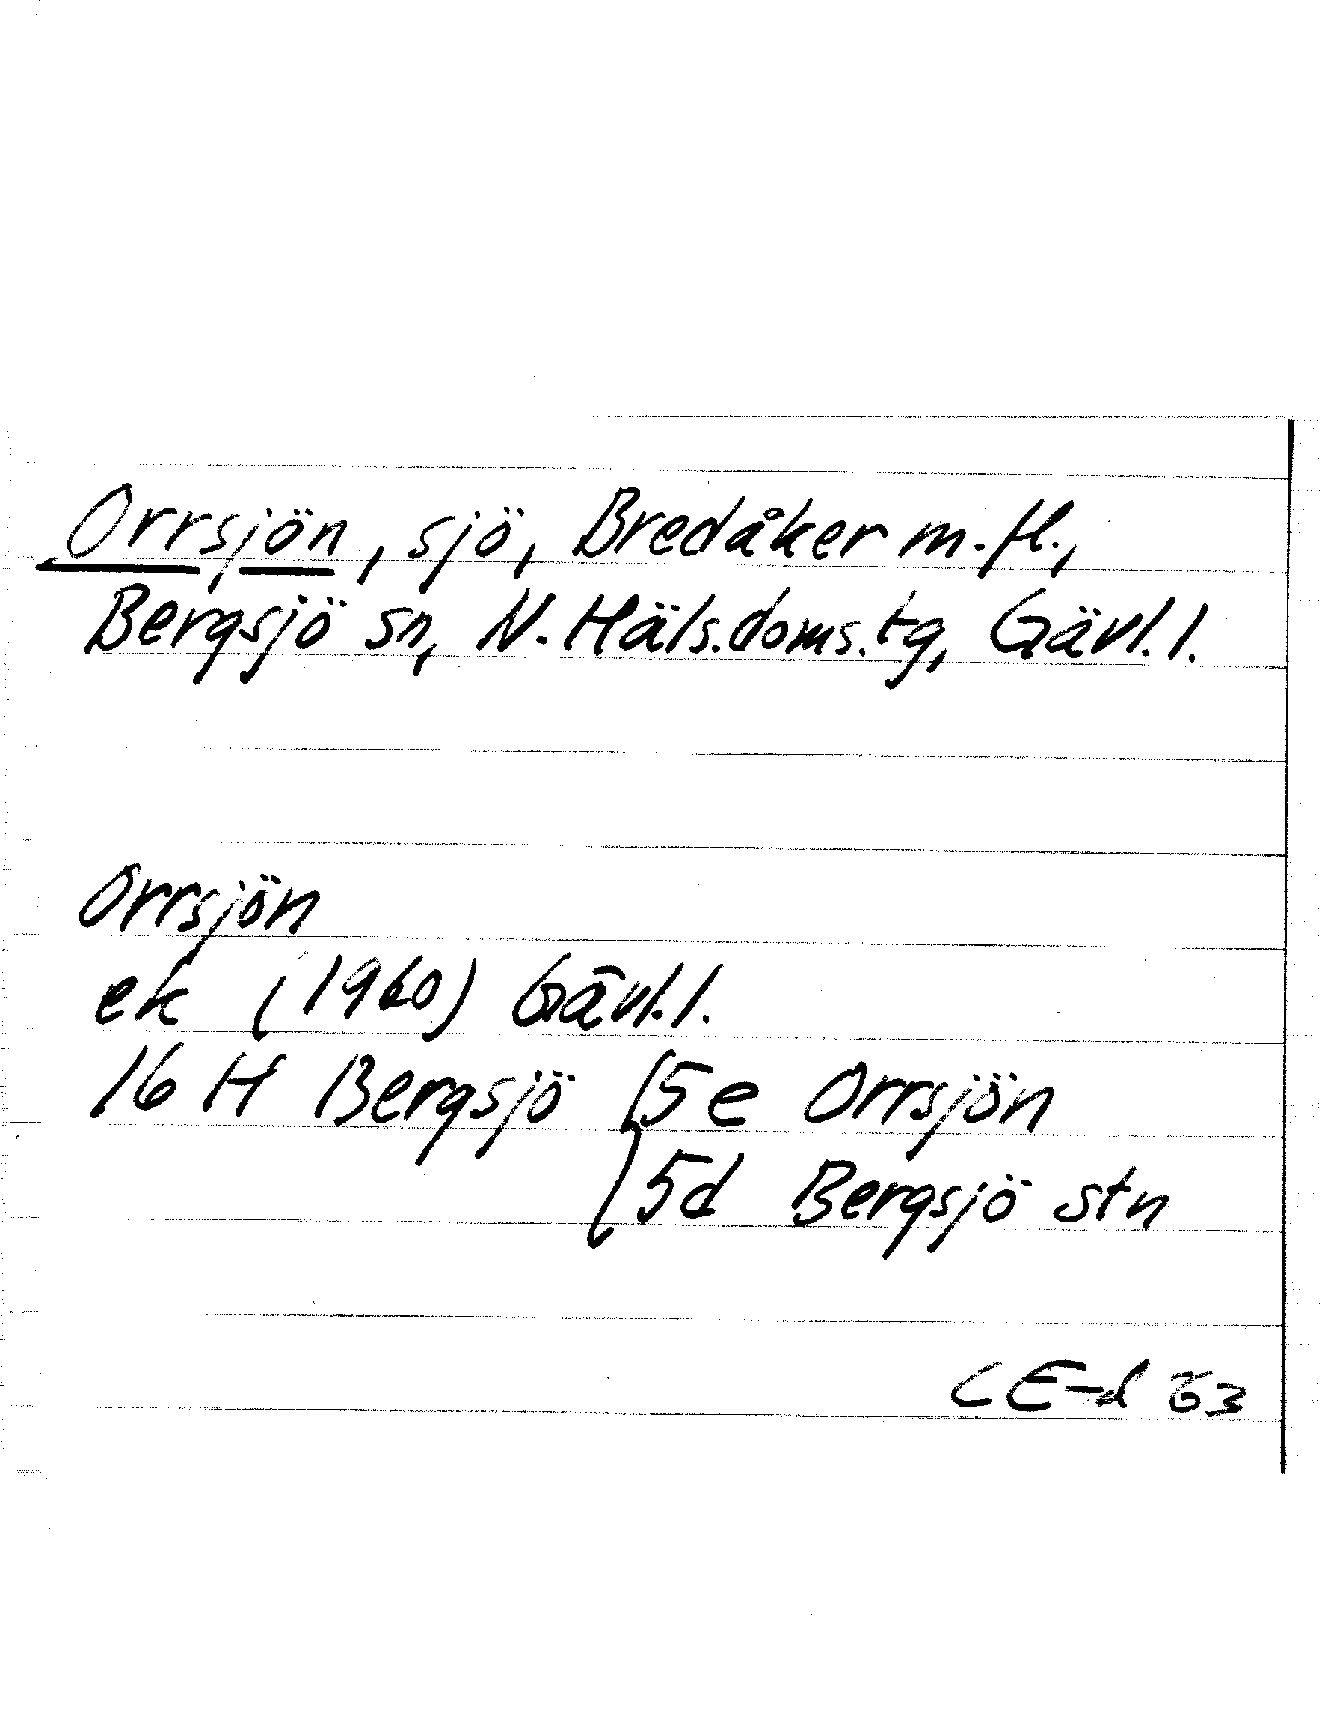 Orrsjön, sjö, Bredåker m.fl.,
Bergsjö sn, N. Häls.doms.tg, Gävl.l.
Orrsjön
ek (1960) Gävl.l.
16 H Bergsjö { 5e Orrsjön
5d Bergsjö stn
CE-d 63